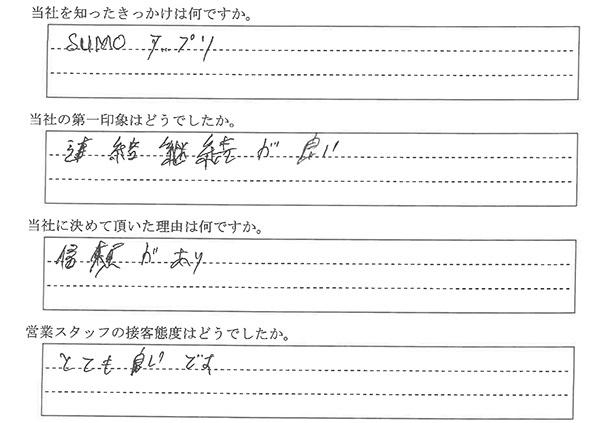 当社を知ったきっかけは何ですか。
SUMO アップリ
当社の第一印象はどうでしたか。
連結継続が良い
当社に決めて頂いた理由は何ですか。
信頼があり
営業スタッフの接客態度はどうでしたか。
とても良いです